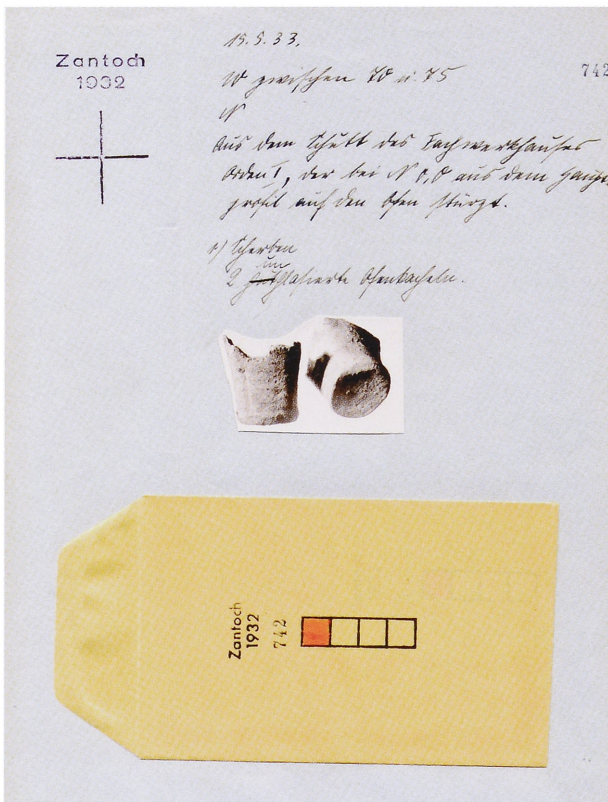 Zantoch
1932
15.5.33.
W zwischen 70 u. 75
N
742
Aus dem Schutt des Fachwerkhauses
Orden I, der bei N 0,0 aus dem Haupt,
profil auf den Ofen stürzt.
Scherben
un
2 glasierte Ofenkacheln.
Zantoch
1932
742